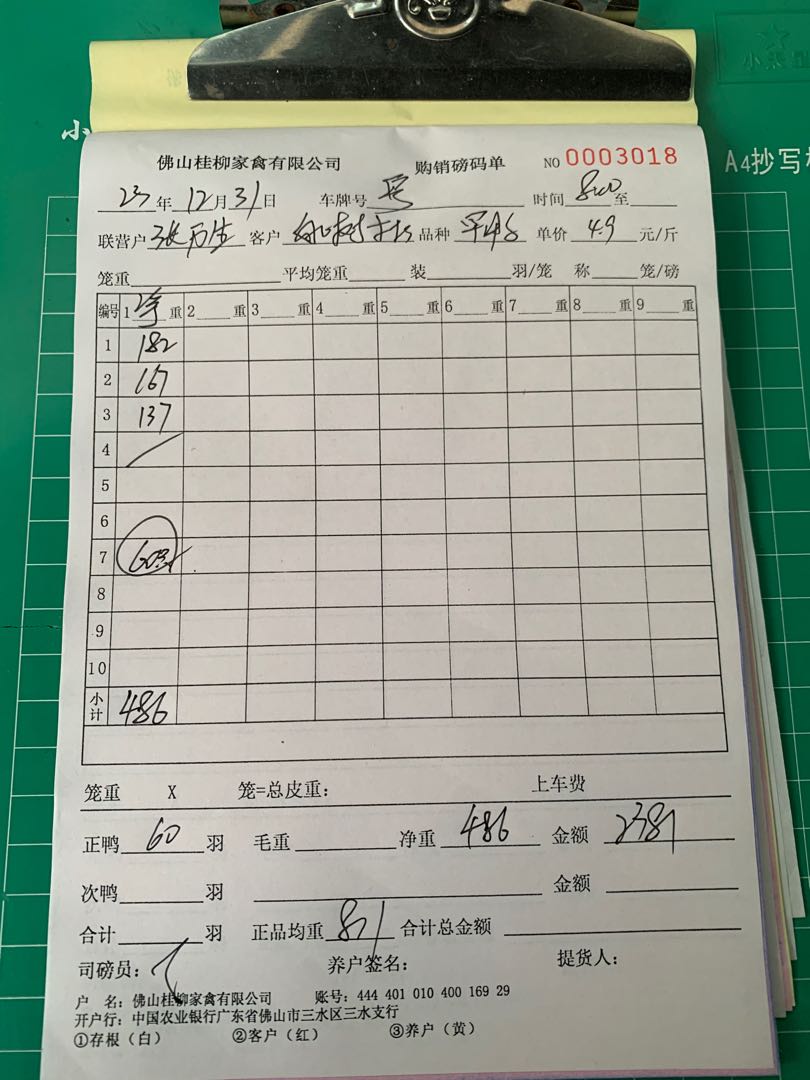 小
A4抄写
佛山桂柳家禽有限公司 购销磅码单 NO 0003018
23年12月31日 车牌号 时间 8:00至
联营户 张万生 客户 品种 单价 4.9 元/斤
笼重 平均笼重 装 羽/笼 称 笼/磅
编号 1 净 重 2 重 3 重 4 重 5 重 6 重 7 重 8 重 9 重
1 182
2 167
3 137
4
5
6
7
8
9
10
小计 486
笼重 X 笼=总皮重: 上车费
正鸭 60 羽 毛重 净重 486 金额 2381
次鸭 羽 金额
合计 羽 正品均重 8.1 合计总金额
司磅员: 养户签名: 提货人:
户 名: 佛山桂柳家禽有限公司 账号: 444 401 010 400 169 29
开户行: 中国农业银行广东省佛山市三水区三水支行
①存根(白) ②客户(红) ③养户(黄)